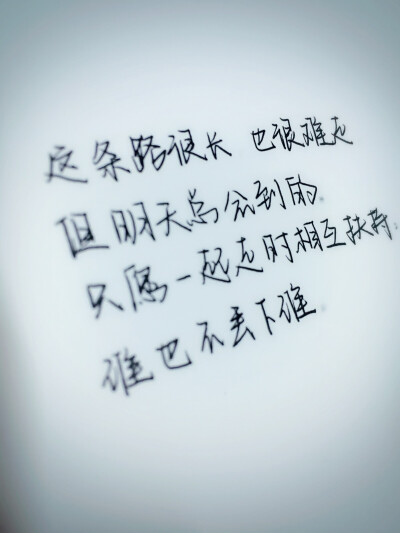 这条路很长 也很难走
但明天总会到的.
只愿一起走时相互扶持.
谁也不丢下谁.